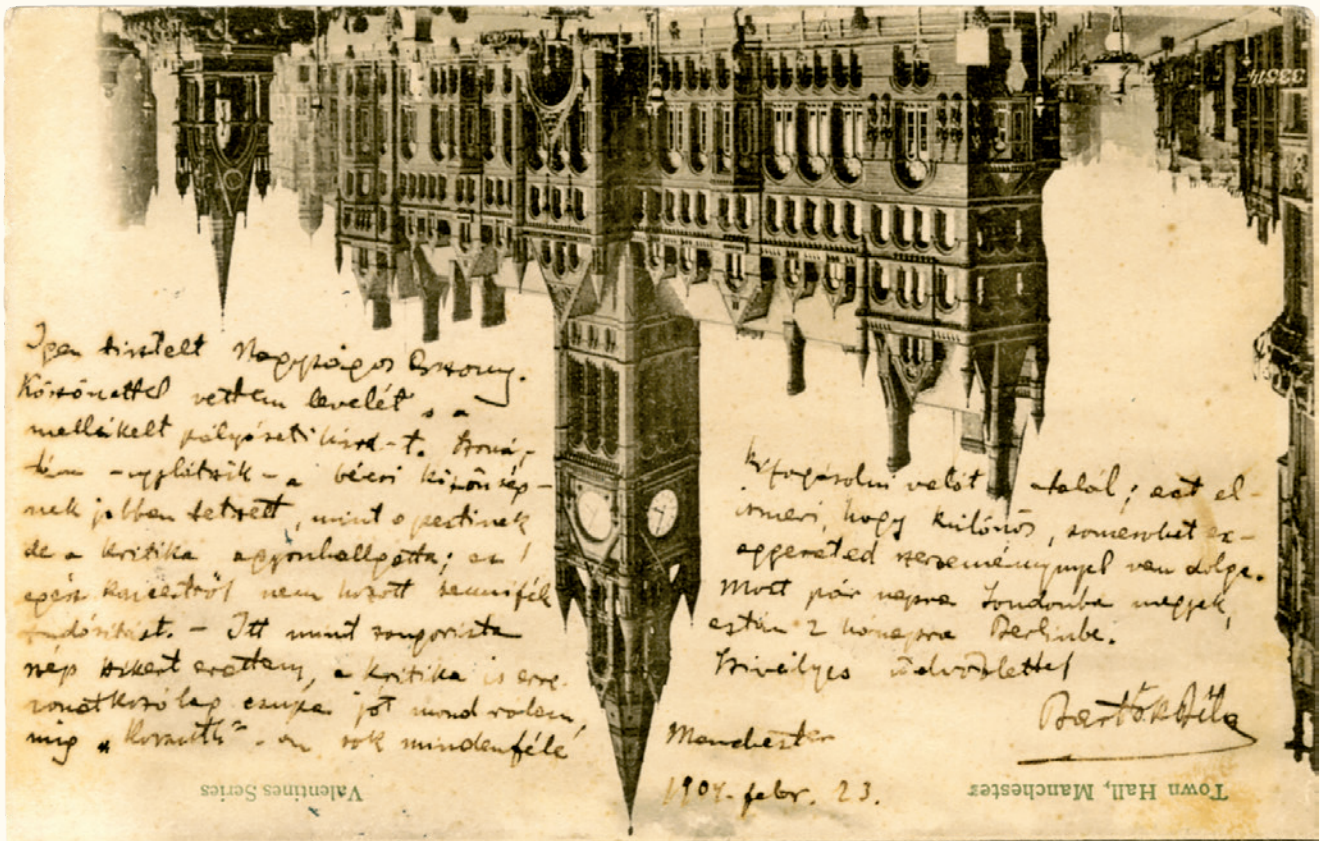 Igen tisztelt Nagyságos Asszony.
Köszönettel vettem levelét s a
mellékelt pályázati hird-t. Szoná-
tám - ugylátszik - a bécsi közönség-
nek jobban tetszett, mint a pestinek
de a kritika agyonhallgatta; az
egész koncertről nem hozott semmiféle
tudósítást. - Itt mint zongorista
szép sikert arattam, a kritika is erre
vonatkozólag csupa jót mond rólam,
mig „Kossuth"-on sok mindenféle
kifogásolni valót talál; azt el-
ismeri, hogy különös, somewhat ex-
aggerated szerzeménynyel van dolga.
Most pár napra Londonba megyek,
aztán 2 hónapra Berlinbe.
Szivélyes üdvözlettel
Bartók Béla
Manchester
1904. febr. 23.
Town Hall, Manchester
Valentines Series
33514